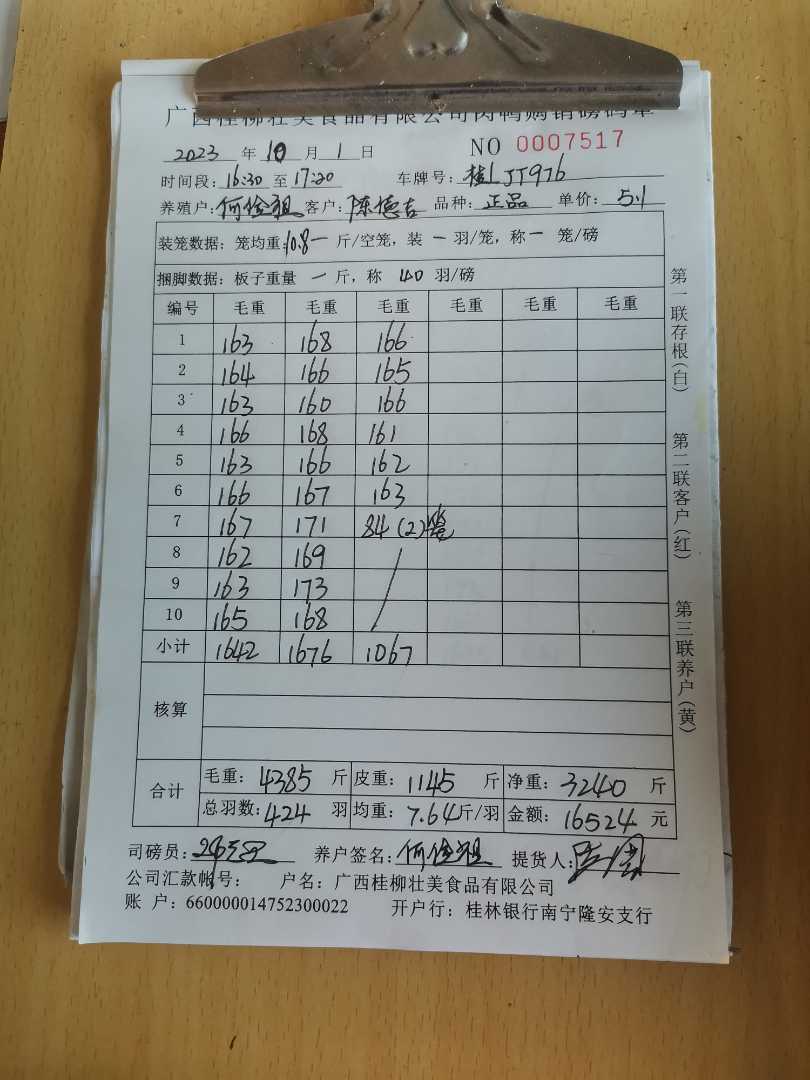 广西桂柳壮美食品有限公司肉鸭购销磅码单
2023 年 10 月 1 日 NO 0007517
时间段: 16:30 至 17:20 车牌号: 桂LJT976
养殖户: 何俭祖 客户: 陈德吉 品种: 正品 单价: 5.1
装笼数据: 笼均重: 10.8 一 斤/空笼, 装 一 羽/笼, 称 一 笼/磅
捆脚数据: 板子重量 一 斤, 称 40 羽/磅
编号 毛重 毛重 毛重 毛重 毛重 毛重
1 163 168 166
2 164 166 165
3 163 160 166
4 166 168 161
5 163 166 162
6 166 167 163
7 167 171 84 (2)笼
8 162 169 /
9 163 173
10 165 168 /
小计 1642 1676 1067
核算
合计 毛重: 4385 斤 皮重: 1145 斤 净重: 3240 斤
总羽数: 424 羽 均重: 7.64 斤/羽 金额: 16524 元
司磅员: 养户签名: 何俭祖 提货人:
公司汇款帐号: 户名: 广西桂柳壮美食品有限公司
账 户: 660000014752300022 开户行: 桂林银行南宁隆安支行
第一联存根(白) 第二联客户(红) 第三联养户(黄)